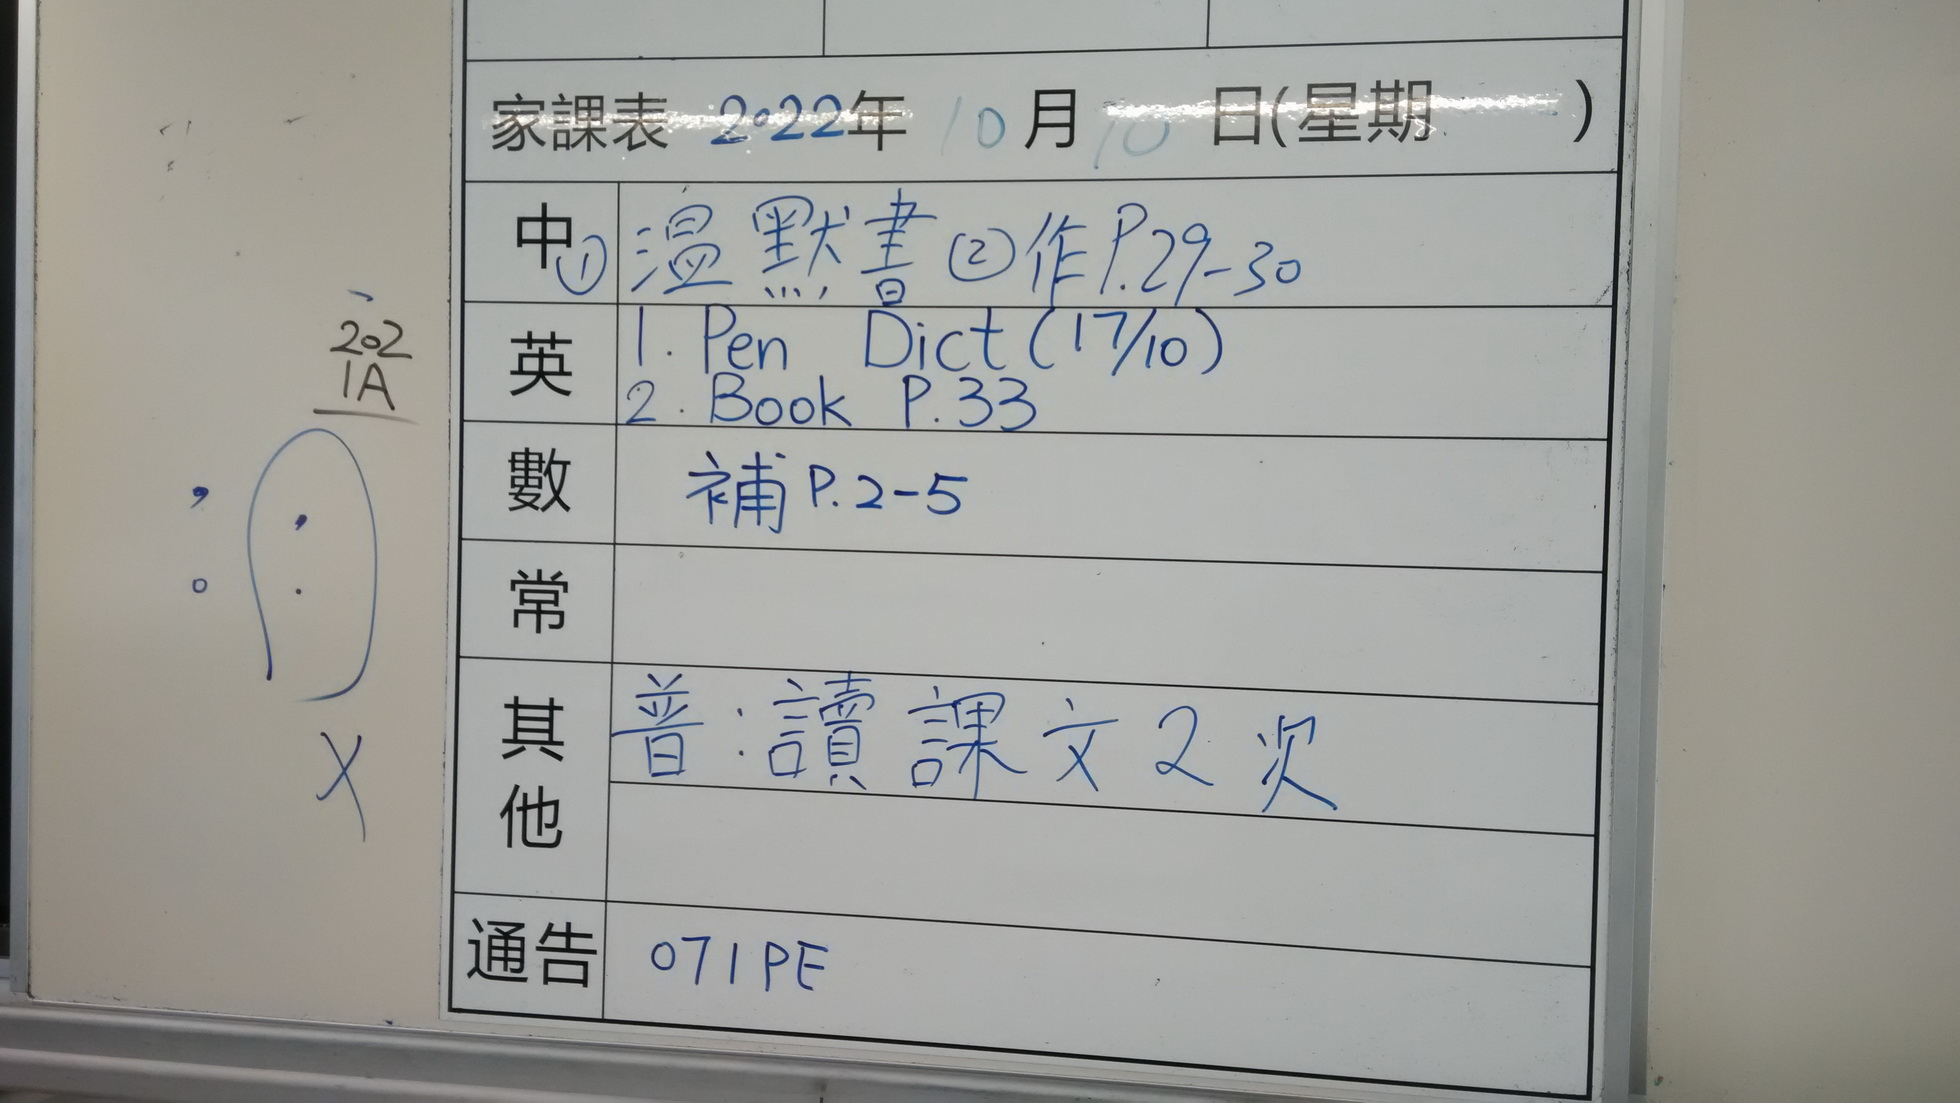 家課表 2022年 10月 10日(星期 )
中 ①溫默書 ②作P.29-30
英 1. Pen Dict (17/10)
2. Book P.33
數 補 P.2-5
常
其他 普:讀課文2次
通告 071PE
202
1A